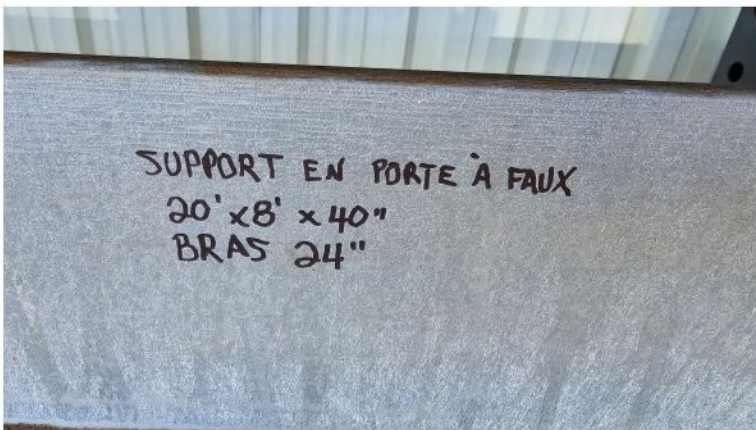 SUPPORT EN PORTE À FAUX
20' x 8' x 40"
BRAS 24"